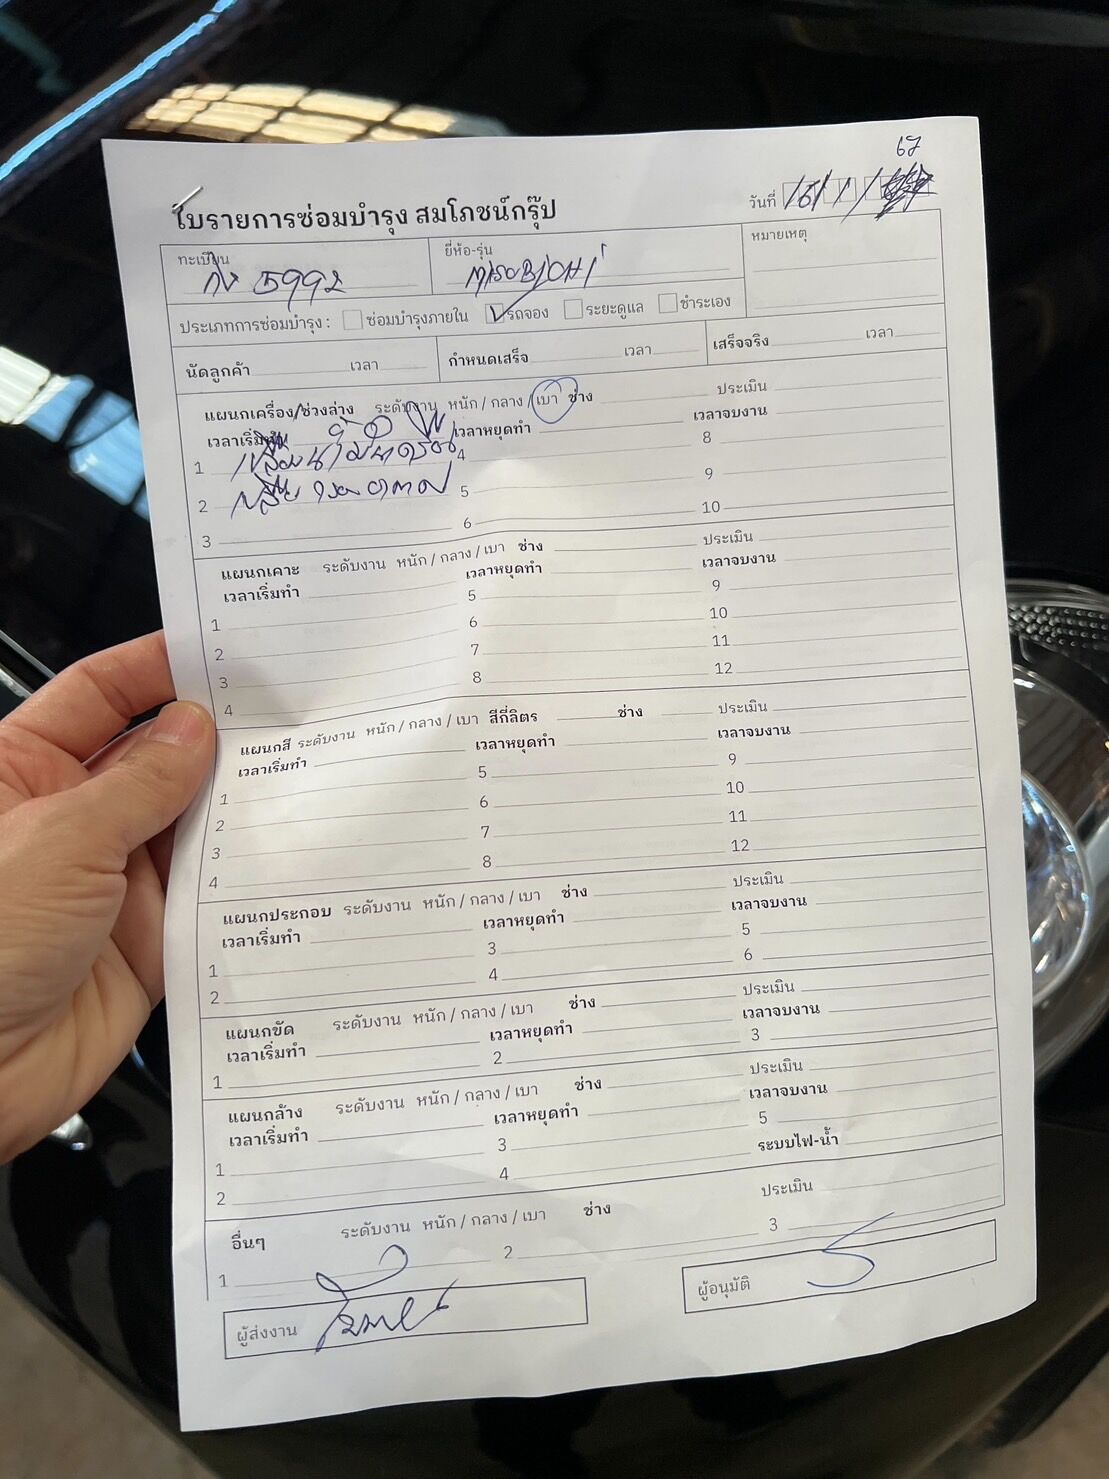 67
ใบรายการซ่อมบำรุง สมโภชน์กรุ๊ป
วันที่ 15/1/
ทะเบียน 5992
ยี่ห้อ-รุ่น MISUBICHI
หมายเหตุ
ประเภทการซ่อมบำรุง : ซ่อมบำรุงภายใน รถจอง ระยะดูแล ชำระเอง
นัดลูกค้า เวลา กำหนดเสร็จ เวลา เสร็จจริง เวลา
แผนกเครื่อง/ช่วงล่าง ระดับงาน หนัก / กลาง / เบา ช่าง ประเมิน
เวลาเริ่มทำ เวลาหยุดทำ เวลาจบงาน
1 เปลี่ยนน้ำมันเครื่อง 4 8
2 เปลี่ยน 5 9
3 6 10
แผนกเคาะ ระดับงาน หนัก / กลาง / เบา ช่าง ประเมิน
เวลาเริ่มทำ เวลาหยุดทำ เวลาจบงาน
1 5 9
2 6 10
3 7 11
4 8 12
แผนกสี ระดับงาน หนัก / กลาง / เบา สีกี่ลิตร ช่าง ประเมิน
เวลาเริ่มทำ เวลาหยุดทำ เวลาจบงาน
1 5 9
2 6 10
3 7 11
4 8 12
แผนกประกอบ ระดับงาน หนัก / กลาง / เบา ช่าง ประเมิน
เวลาเริ่มทำ เวลาหยุดทำ เวลาจบงาน
1 3 5
2 4 6
แผนกขัด ระดับงาน หนัก / กลาง / เบา ช่าง ประเมิน
เวลาเริ่มทำ เวลาหยุดทำ เวลาจบงาน
1 2 3
แผนกล้าง ระดับงาน หนัก / กลาง / เบา ช่าง ประเมิน
เวลาเริ่มทำ เวลาหยุดทำ เวลาจบงาน
1 3 5
2 4 ระบบไฟ-น้ำ
อื่นๆ ระดับงาน หนัก / กลาง / เบา ช่าง ประเมิน
1 2 3
ผู้ส่งงาน
ผู้อนุมัติ